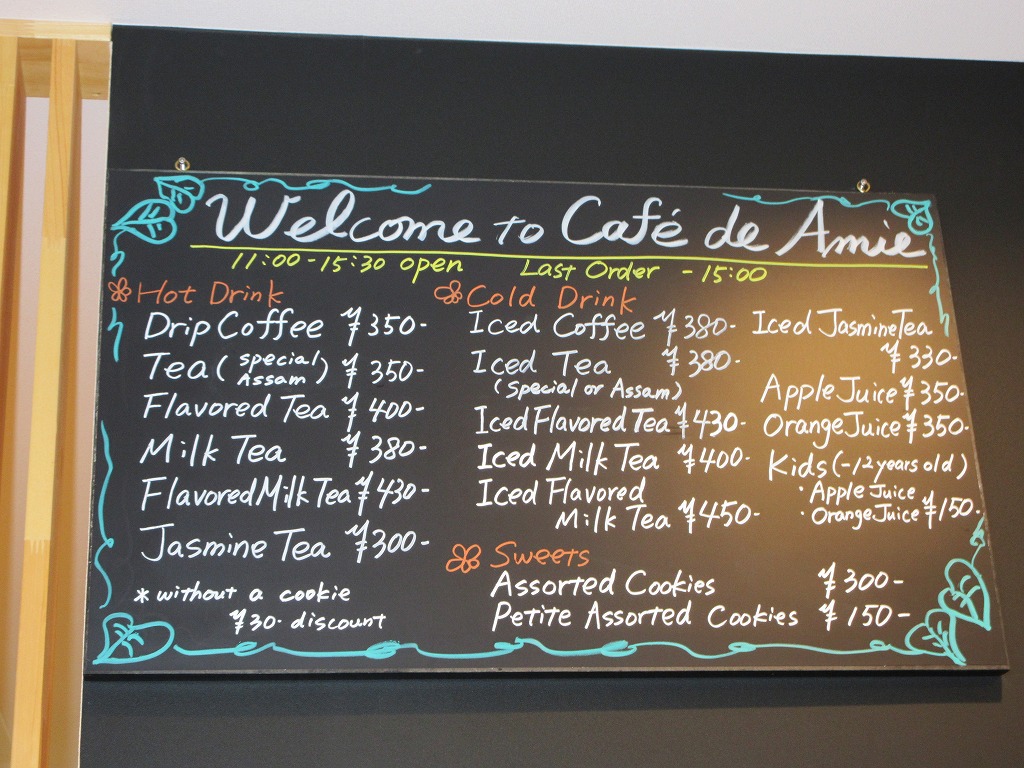 Welcome to Café de Amie
11:00-15:30 open Last Order - 15:00
Hot Drink
Drip Coffee ¥350-
Tea (special Assam) ¥350-
Flavored Tea ¥400-
Milk Tea ¥380-
Flavored Milk Tea ¥430-
Jasmine Tea ¥300-
*without a cookie
¥30- discount
Cold Drink
Iced Coffee ¥380-
Iced Tea ¥380-
(Special or Assam)
Iced Flavored Tea ¥430-
Iced Milk Tea ¥400-
Iced Flavored
Milk Tea ¥450-
Iced Jasmine Tea
¥330-
Apple Juice ¥350-
Orange Juice ¥350-
Kids (-12 years old)
・Apple Juice
・Orange Juice ¥150-
Sweets
Assorted Cookies ¥300-
Petite Assorted Cookies ¥150-